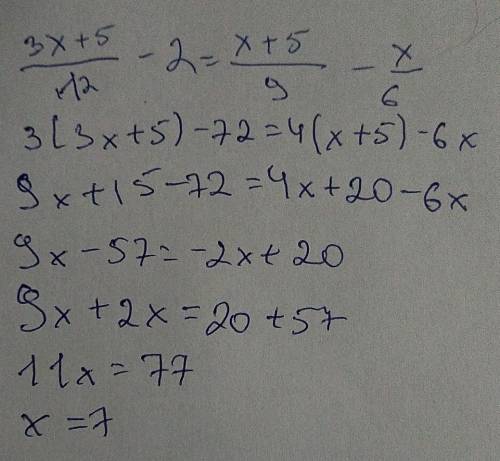 (3x+5)/12 - 2 = (x+5)/9 - x/6
3(3x+5)-72=4(x+5)-6x
9x+15-72=4x+20-6x
9x-57=-2x+20
9x+2x=20+57
11x=77
x=7